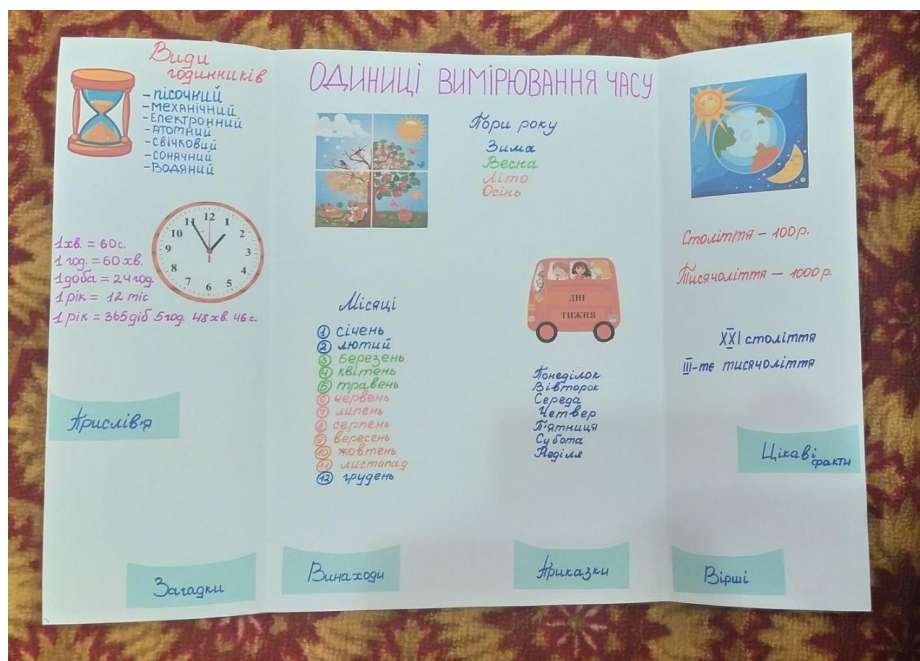 Види
годинників
-пісочний
-механічний
-Електронний
-атомний
-свічковий
-сонячний
-Водяний
12
1
2
3
4
5
6
7
8
9
10
11
1хв. = 60с.
1 год. = 60 хв.
1доба = 24 год.
1 рік = 12 міс
1 рік = 365діб 5год. 48хв 46с.
Прислів'я
Загадки
ОДИНИЦІ ВИМІРЮВАННЯ ЧАСУ
Пори року
Зима
Весна
Літо
Осінь
Місяці
1 січень
2 лютий
3 березень
4 квітень
5 травень
6 червень
7 липень
8 серпень
9 вересень
10 жовтень
11 листопад
12 грудень
ДНІ
ТИЖНЯ
Понеділок
Вівторок
Середа
Четвер
П'ятниця
Субота
Неділя
Винаходи
Приказки
Століття – 100р.
Тисячоліття – 1000р.
XXI століття
III-тє тисячоліття
Цікаві
факти
Вірші